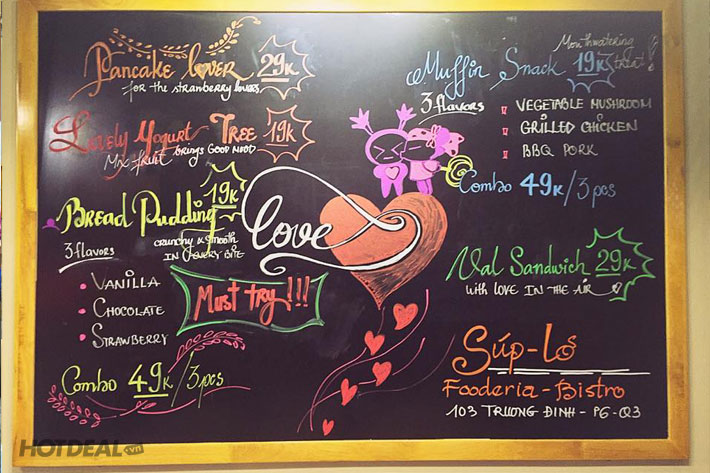 Pancake lover 29K
for the stranberry lovers
Lovely Yogurt Tree 19K
Mix fruit brings good mood
Bread Pudding 19K
3 flavors
crunchy & smooth
in every bite
Vanilla
Chocolate
Strawberry
Must try!!!
Combo 49K/3pcs
love
Mouthwatering
treat!
Muffin Snack 19K
3 flavors
VEGETABLE MUSHROOM
GRILLED CHICKEN
BBQ PORK
Combo 49K/3pcs
Val Sandwich 29K
with LOVE IN THE AIR
Súp-Lơ
Fooderia-Bistro
103 TRUONG ĐINH - P6-Q3
HOTDEAL.vn